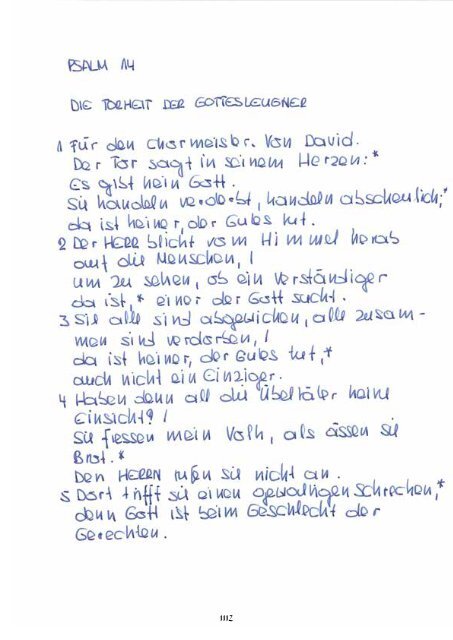 PSALM 14
DIE TORHEIT DER GOTTESLEUGNER
1 Für den Chormeister. Von David.
Der Tor sagt in seinem Herzen:*
Es gibt kein Gott.
Sie handeln verderbt, handeln abscheulich;*
da ist keiner, der Gutes tut.
2 Der HERR blickt vom Himmel herab
auf die Menschen, /
um zu sehen, ob ein Verständiger
da ist,* einer der Gott sucht.
3 Sie alle sind abgewichen, alle zusam-
men sind verdorben, /
da ist keiner, der Gutes tut,*
auch nicht ein Einziger.
4 Haben denn all die Übeltäter keine
Einsicht? /
Sie fressen mein Volk, als ässen sie
Brot.*
Den HERRN rufen sie nicht an.
5 Dort trifft sie einen gewaltigen Schrecken,*
denn Gott ist beim Geschlecht der
Gerechten.
1112